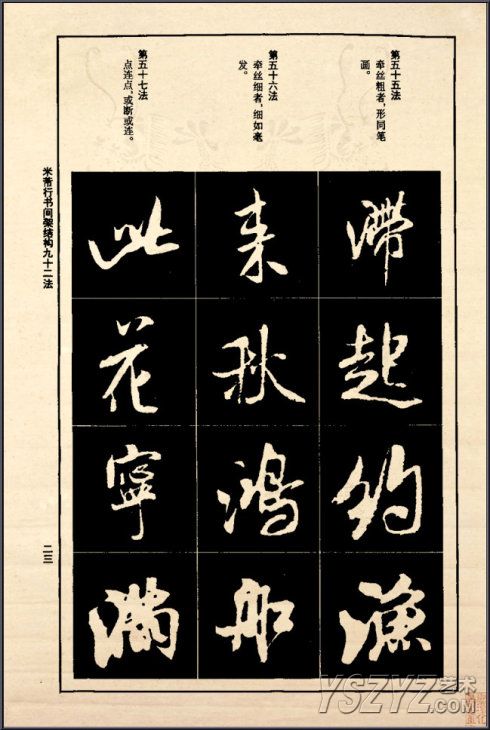 第五十五法
牵丝粗者，形同笔
画。
第五十六法
牵丝细者，细如毫
发。
第五十七法
点连点，或断或连。
滞起约渔
来秋鸿船
此花宁满
米芾行书间架结构九十二法
二三
YSZYZ艺术
.COM